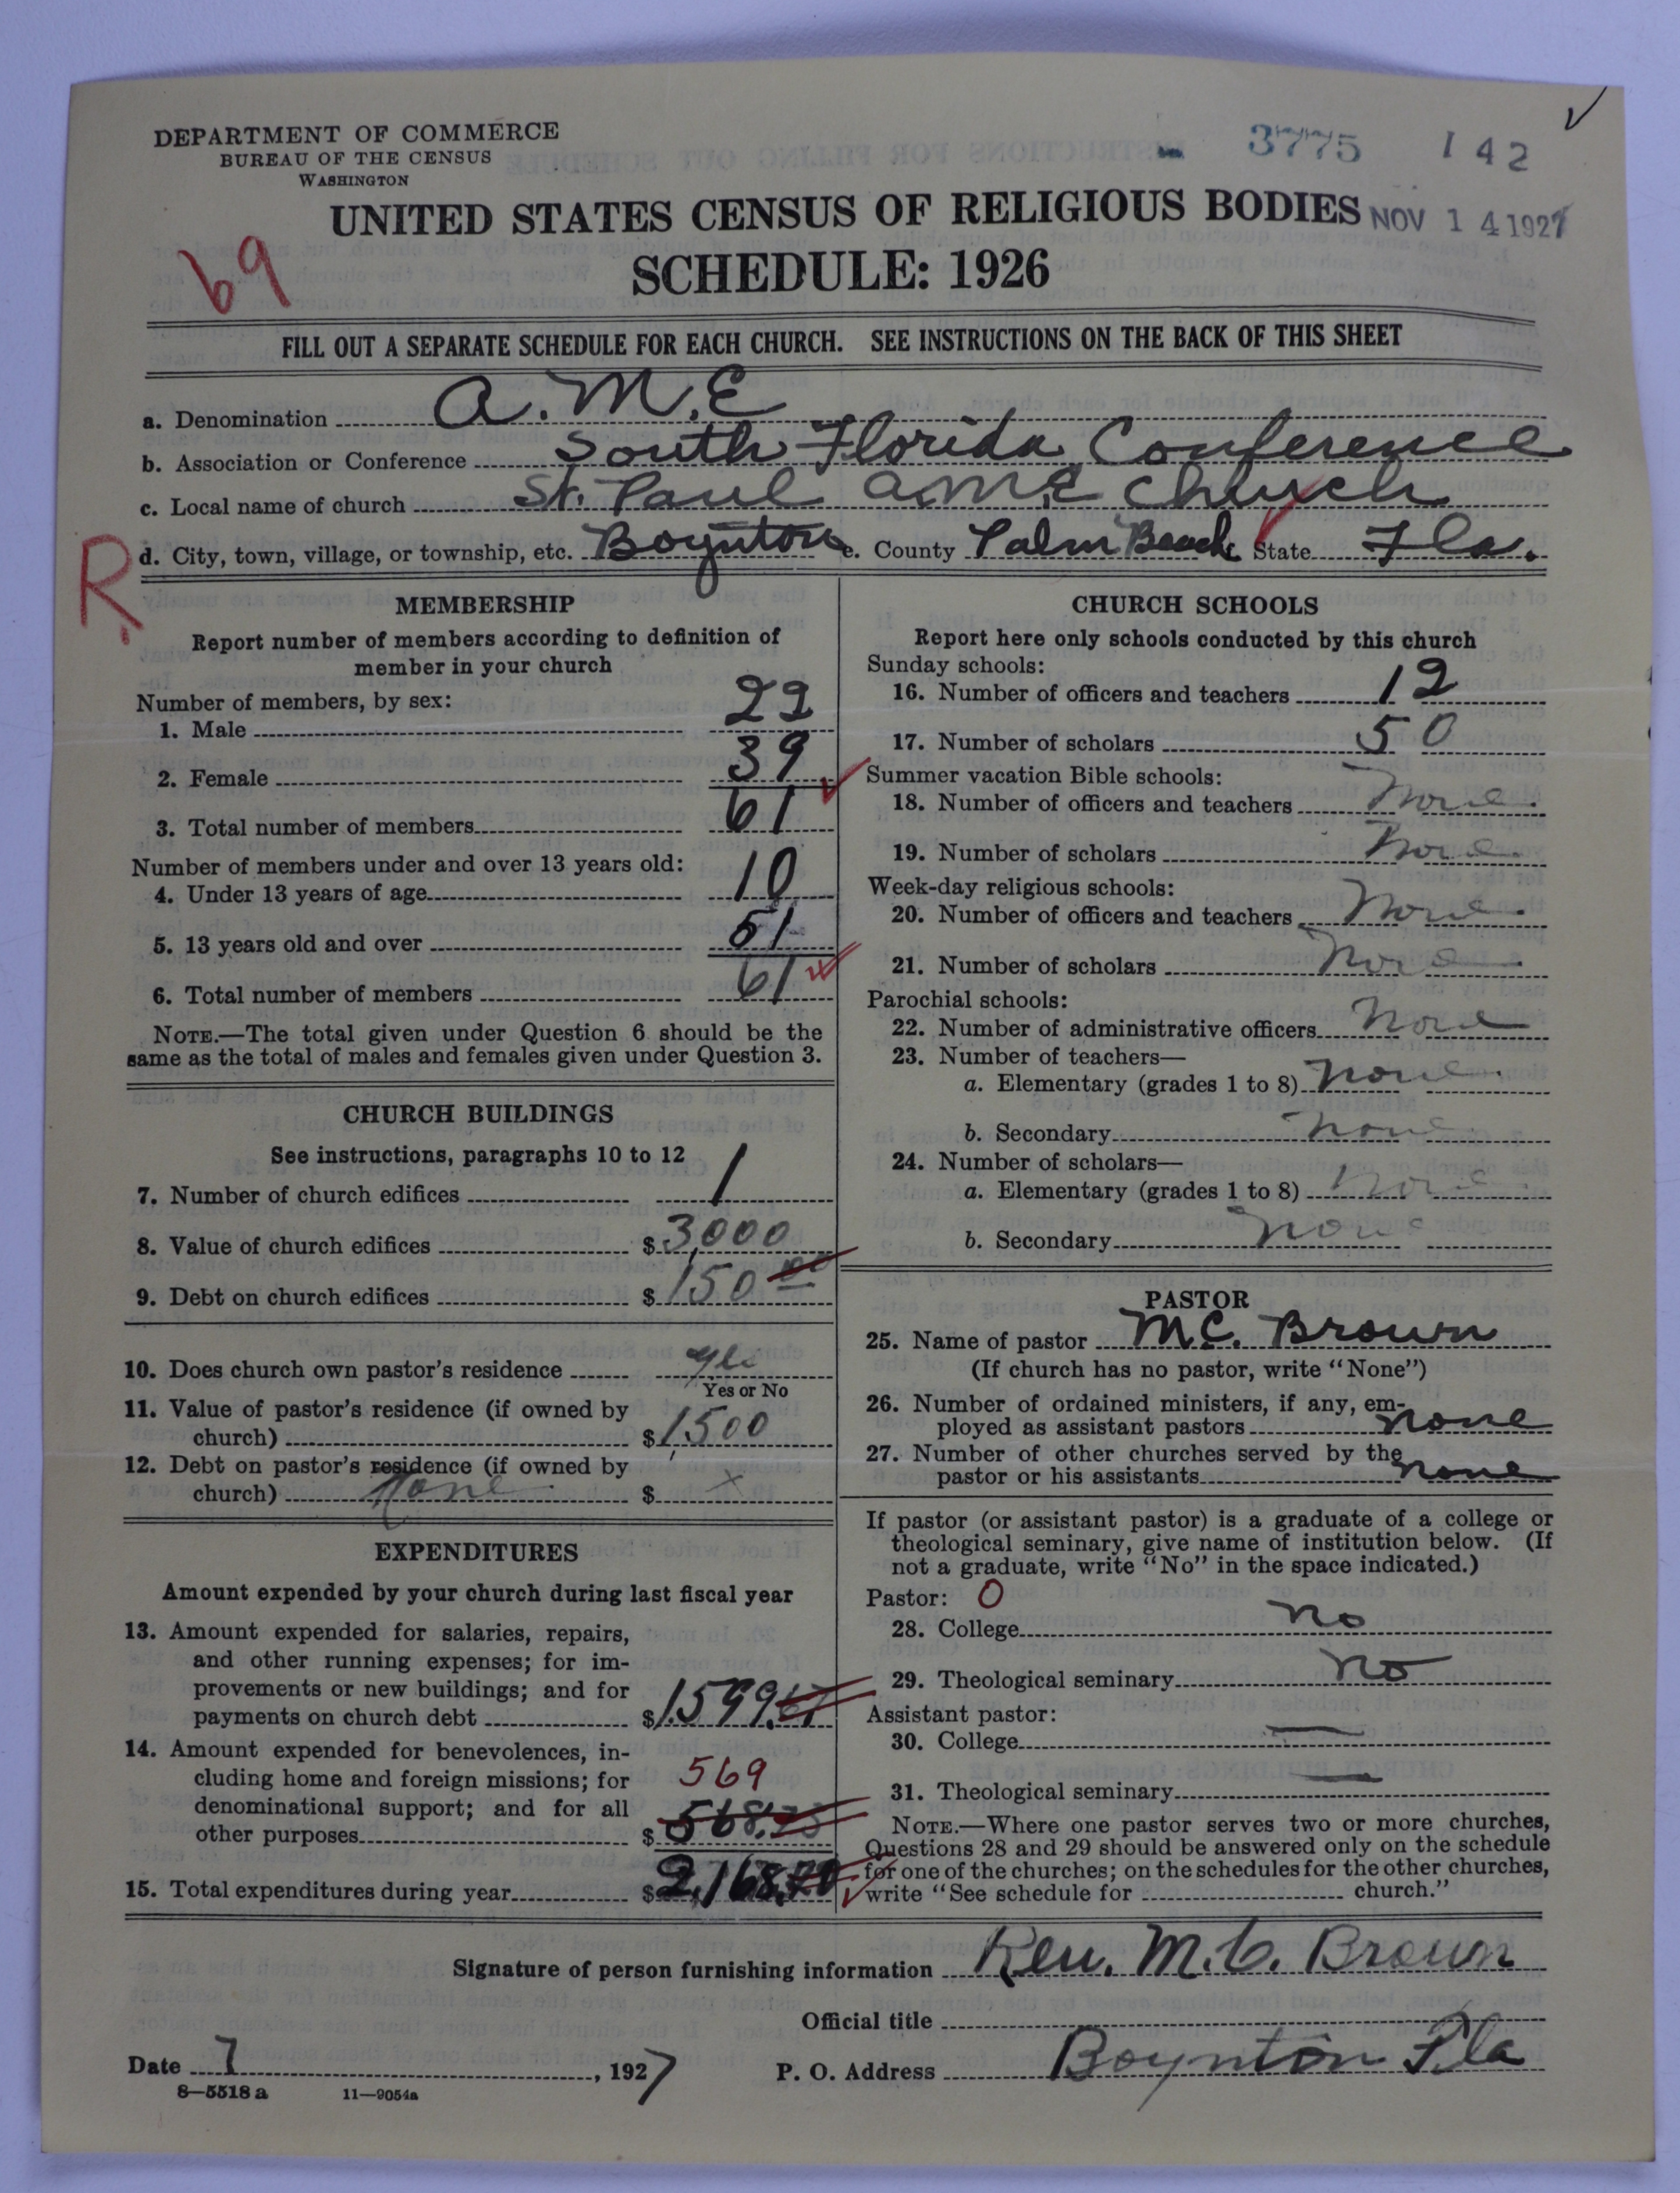 DEPARTMENT OF COMMERCE
BUREAU OF THE CENSUS
WASHINGTON
3775 142
UNITED STATES CENSUS OF RELIGIOUS BODIES NOV 14 1927
SCHEDULE: 1926
69
FILL OUT A SEPARATE SCHEDULE FOR EACH CHURCH. SEE INSTRUCTIONS ON THE BACK OF THIS SHEET
a. Denomination A.M.E
b. Association or Conference South Florida Conference
c. Local name of church St. Paul A.M.E Church
d. City, town, village, or township, etc. Boynton e. County Palm Beach State Fla.
R
MEMBERSHIP
Report number of members according to definition of
member in your church
Number of members, by sex:
1. Male 22
2. Female 39
3. Total number of members 61
Number of members under and over 13 years old:
4. Under 13 years of age 10
5. 13 years old and over 51
6. Total number of members 61
NOTE.—The total given under Question 6 should be the
same as the total of males and females given under Question 3.
CHURCH BUILDINGS
See instructions, paragraphs 10 to 12
7. Number of church edifices 1
8. Value of church edifices $3,000
9. Debt on church edifices $150 00
10. Does church own pastor's residence yes
Yes or No
11. Value of pastor's residence (if owned by
church) $1,500
12. Debt on pastor's residence (if owned by
church) None $ x
EXPENDITURES
Amount expended by your church during last fiscal year
13. Amount expended for salaries, repairs,
and other running expenses; for im-
provements or new buildings; and for
payments on church debt $1,599.67
14. Amount expended for benevolences, in-
cluding home and foreign missions; for 569
denominational support; and for all
other purposes $568.
15. Total expenditures during year $2,168.
CHURCH SCHOOLS
Report here only schools conducted by this church
Sunday schools:
16. Number of officers and teachers 12
17. Number of scholars 50
Summer vacation Bible schools:
18. Number of officers and teachers None
19. Number of scholars None
Week-day religious schools:
20. Number of officers and teachers None
21. Number of scholars None
Parochial schools:
22. Number of administrative officers None
23. Number of teachers—
a. Elementary (grades 1 to 8) None
b. Secondary None
24. Number of scholars—
a. Elementary (grades 1 to 8) None
b. Secondary None
PASTOR
25. Name of pastor M.C. Brown
(If church has no pastor, write "None")
26. Number of ordained ministers, if any, em-
ployed as assistant pastors none
27. Number of other churches served by the
pastor or his assistants none
If pastor (or assistant pastor) is a graduate of a college or
theological seminary, give name of institution below. (If
not a graduate, write "No" in the space indicated.)
Pastor: 0
28. College no
29. Theological seminary no
Assistant pastor:
30. College —
31. Theological seminary —
NOTE.—Where one pastor serves two or more churches,
Questions 28 and 29 should be answered only on the schedule
for one of the churches; on the schedules for the other churches,
write "See schedule for church."
Signature of person furnishing information Rev. M.C. Brown
Official title
Date 7, 1927 P. O. Address Boynton Fla
8—5518 a 11—9054a